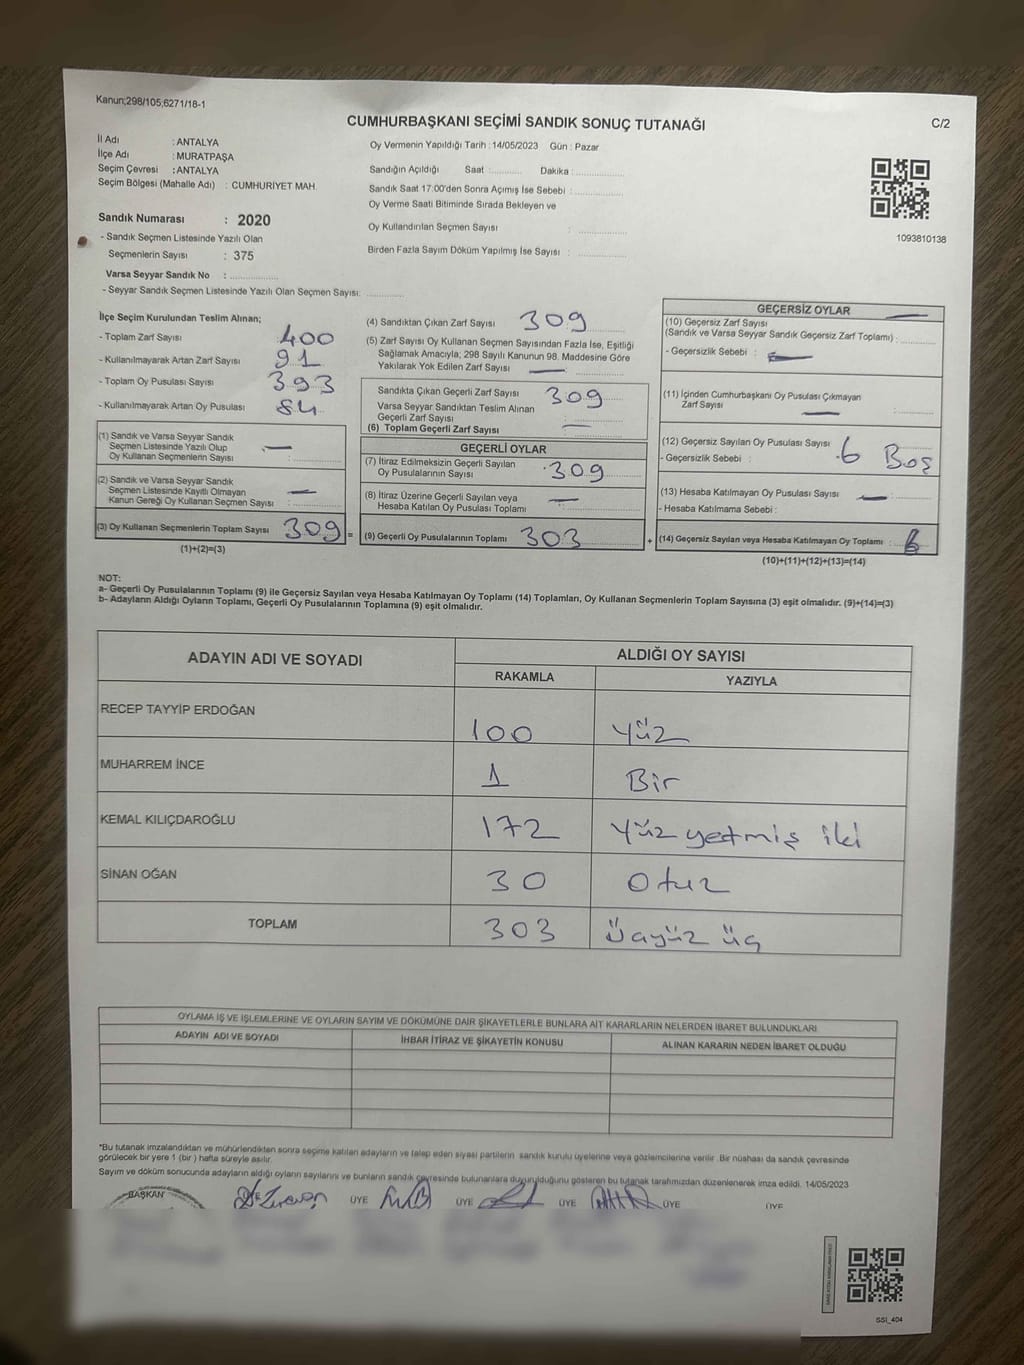 Kanun;298/105;6271/18-1
CUMHURBAŞKANI SEÇİMİ SANDIK SONUÇ TUTANAĞI
C/2
İl Adı : ANTALYA
İlçe Adı : MURATPAŞA
Seçim Çevresi : ANTALYA
Seçim Bölgesi (Mahalle Adı) : CUMHURİYET MAH.
Sandık Numarası : 2020
- Sandık Seçmen Listesinde Yazılı Olan
Seçmenlerin Sayısı : 375
Varsa Seyyar Sandık No : ..............
- Seyyar Sandık Seçmen Listesinde Yazılı Olan Seçmen Sayısı: ............
Oy Vermenin Yapıldığı Tarih : 14/05/2023 Gün : Pazar
Sandığın Açıldığı Saat :.......... Dakika :..............
Sandık Saat 17:00'den Sonra Açımış İse Sebebi :..............
Oy Verme Saati Bitiminde Sırada Bekleyen ve
Oy Kullandırılan Seçmen Sayısı : ..............
Birden Fazla Sayım Döküm Yapılmış İse Sayısı : ..............
1093810138
İlçe Seçim Kurulundan Teslim Alınan;
- Toplam Zarf Sayısı : 400
- Kullanılmayarak Artan Zarf Sayısı : 91
- Toplam Oy Pusulası Sayısı : 393
- Kullanılmayarak Artan Oy Pusulası : 84
(1) Sandık ve Varsa Seyyar Sandık
Seçmen Listesinde Yazılı Olup
Oy Kullanan Seçmenlerin Sayısı : —
(2) Sandık ve Varsa Seyyar Sandık
Seçmen Listesinde Kayıtlı Olmayan
Kanun Gereği Oy Kullanan Seçmen Sayısı : —
(3) Oy Kullanan Seçmenlerin Toplam Sayısı : 309 =
(1)+(2)=(3)
(4) Sandıktan Çıkan Zarf Sayısı : 309
(5) Zarf Sayısı Oy Kullanan Seçmen Sayısından Fazla İse, Eşitliği
Sağlamak Amacıyla; 298 Sayılı Kanunun 98. Maddesine Göre
Yakılarak Yok Edilen Zarf Sayısı : —
Sandıkta Çıkan Geçerli Zarf Sayısı : 309
Varsa Seyyar Sandıktan Teslim Alınan
Geçerli Zarf Sayısı :
(6) Toplam Geçerli Zarf Sayısı : —
GEÇERLİ OYLAR
(7) İtiraz Edilmeksizin Geçerli Sayılan
Oy Pusulalarının Sayısı : 309
(8) İtiraz Üzerine Geçerli Sayılan veya
Hesaba Katılan Oy Pusulası Toplamı : —
(9) Geçerli Oy Pusulalarının Toplamı : 303 +
GEÇERSİZ OYLAR
(10) Geçersiz Zarf Sayısı —
(Sandık ve Varsa Seyyar Sandık Geçersiz Zarf Toplamı) : ..........
- Geçersizlik Sebebi : —
(11) İçinden Cumhurbaşkanı Oy Pusulası Çıkmayan
Zarf Sayısı — : ..........
(12) Geçersiz Sayılan Oy Pusulası Sayısı : 6 Boş
- Geçersizlik Sebebi :
(13) Hesaba Katılmayan Oy Pusulası Sayısı : —
- Hesaba Katılmama Sebebi :
(14) Geçersiz Sayılan veya Hesaba Katılmayan Oy Toplamı : 6
(10)+(11)+(12)+(13)=(14)
NOT:
a- Geçerli Oy Pusulalarının Toplamı (9) ile Geçersiz Sayılan veya Hesaba Katılmayan Oy Toplamı (14) Toplamları, Oy Kullanan Seçmenlerin Toplam Sayısına (3) eşit olmalıdır. (9)+(14)=(3)
b- Adayların Aldığı Oyların Toplamı, Geçerli Oy Pusulalarının Toplamına (9) eşit olmalıdır.
ADAYIN ADI VE SOYADI ALDIĞI OY SAYISI
RAKAMLA YAZIYLA
RECEP TAYYİP ERDOĞAN 100 Yüz
MUHARREM İNCE 1 Bir
KEMAL KILIÇDAROĞLU 172 Yüz yetmiş iki
SİNAN OĞAN 30 Otuz
TOPLAM 303 Üçyüz üç
OYLAMA İŞ VE İŞLEMLERİNE VE OYLARIN SAYIM VE DÖKÜMÜNE DAİR ŞİKAYETLERLE BUNLARA AİT KARARLARIN NELERDEN İBARET BULUNDUKLARI
ADAYIN ADI VE SOYADI İHBAR İTİRAZ VE ŞİKAYETİN KONUSU ALINAN KARARIN NEDEN İBARET OLDUĞU
*Bu tutanak imzalandıktan ve mühürlendikten sonra seçime katılan adayların ve talep eden siyasi partilerin sandık kurulu üyelerine veya gözlemcilerine verilir. Bir nüshası da sandık çevresinde
görülecek bir yere 1 (bir) hafta süreyle asılır.
Sayım ve döküm sonucunda adayların aldığı oyların sayılarını ve bunların sandık çevresinde bulunanlara duyurulduğunu gösteren bu tutanak tarafımızdan düzenlenerek imza edildi. 14/05/2023
BAŞKAN ÜYE ÜYE ÜYE ÜYE ÜYE
SSI_404